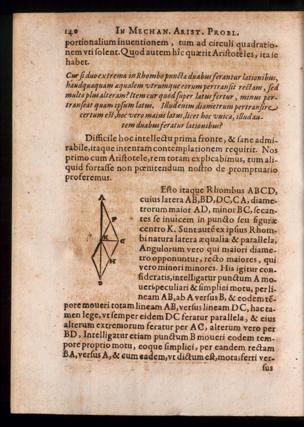 140 IN MECHAN. ARIST. PROBL.
portionalium inuentionem, tum ad circuli quadratio-
nem vti solent. Quod autem hîc quærit Aristoteles, ita se
habet.
Cur si duo extrema in Rhombo puncta duabus ferantur lationibus,
haudquaquam æqualem vtrumque eorum pertransit rectam, sed
multo plus alteram? Item cur quod super latus fertur, minus per-
transeat quam ipsum latus. Illud enim diametrum pertransire
certum est, hoc vero maius latus, licet hoc vnica, illud au-
tem duabus feratur lationibus?
Difficile hoc intellectu prima fronte, & sane admi-
rabile, itaque intentam contemplationem requirit. Nos
primo cum Aristotele, rem totam explicabimus, tum ali-
quid fortasse non pœnitendum nostro de promptuario
proferemus.
Esto itaque Rhombus ABCD,
cuius latera AB, BD, DC, CA, diame-
trorum maior AD, minor BC, secan-
tes se inuicem in puncto seu figuræ
centro K. Sunt autẽ ex ipsius Rhom-
bi natura latera æqualia & parallela,
Angulorum vero qui maiori diame-
tro opponuntur, recto maiores, qui
vero minori minores. His igitur con-
sideratis, intelligatur punctum A mo-
ueri peculiari & simplici motu, per li-
neam AB, ab A versus B, & eodem tẽ-
pore moueri totam lineam AB, versus lineam DC, hac ta-
men lege, vt semper eidem DC feratur parallela, & eius
alterum extremorum feratur per AC, alterum vero per
BD. Intelligatur etiam punctum B moueri eodem tem-
pore proprio motu, eoque simplici, per eandem rectam
BA, versus A, & cum eadem, vt dictum est, mota: ferri ver-
sus
A
F
C
K
B
H
D